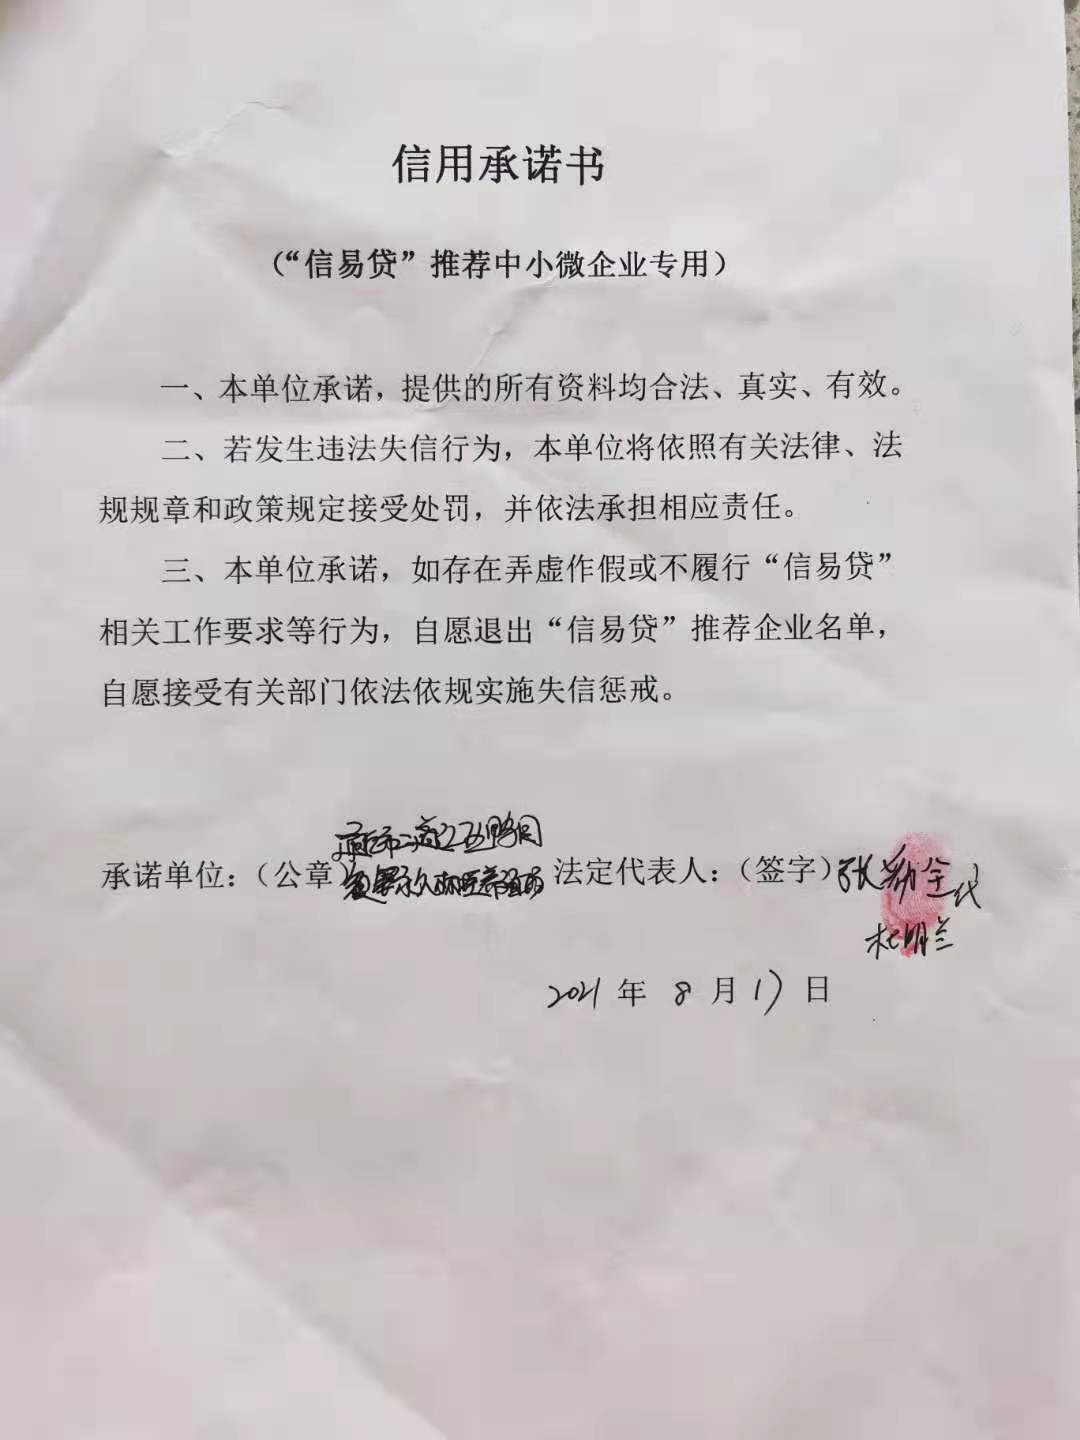 信用承诺书
（“信易贷”推荐中小微企业专用）
一、本单位承诺，提供的所有资料均合法、真实、有效。
二、若发生违法失信行为，本单位将依照有关法律、法
规规章和政策规定接受处罚，并依法承担相应责任。
三、本单位承诺，如存在弄虚作假或不履行“信易贷”
相关工作要求等行为，自愿退出“信易贷”推荐企业名单，
自愿接受有关部门依法依规实施失信惩戒。
承诺单位：（公章） 法定代表人：（签字）张勋全代
杜明兰
2021 年 8 月 17 日